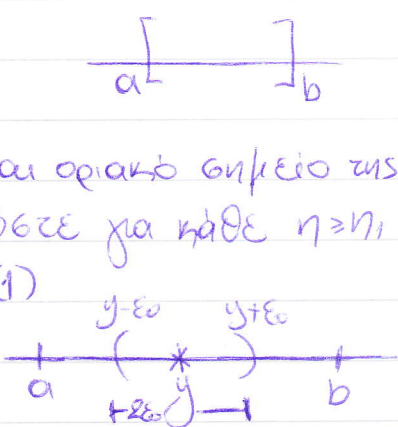 a b
αι οριακό σημείο της
ώστε για κάθε n≥n₁
(1)
y-ε₀ y+ε₀
a y b
2ε₀